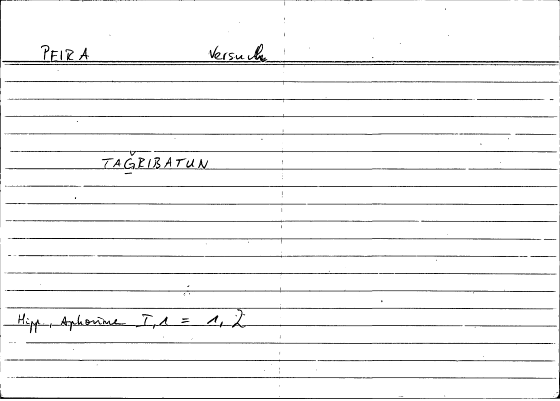 PEIRA Versuch
TAǦRIBATUN
Hipp., Aphorisme I,1 = 1,2